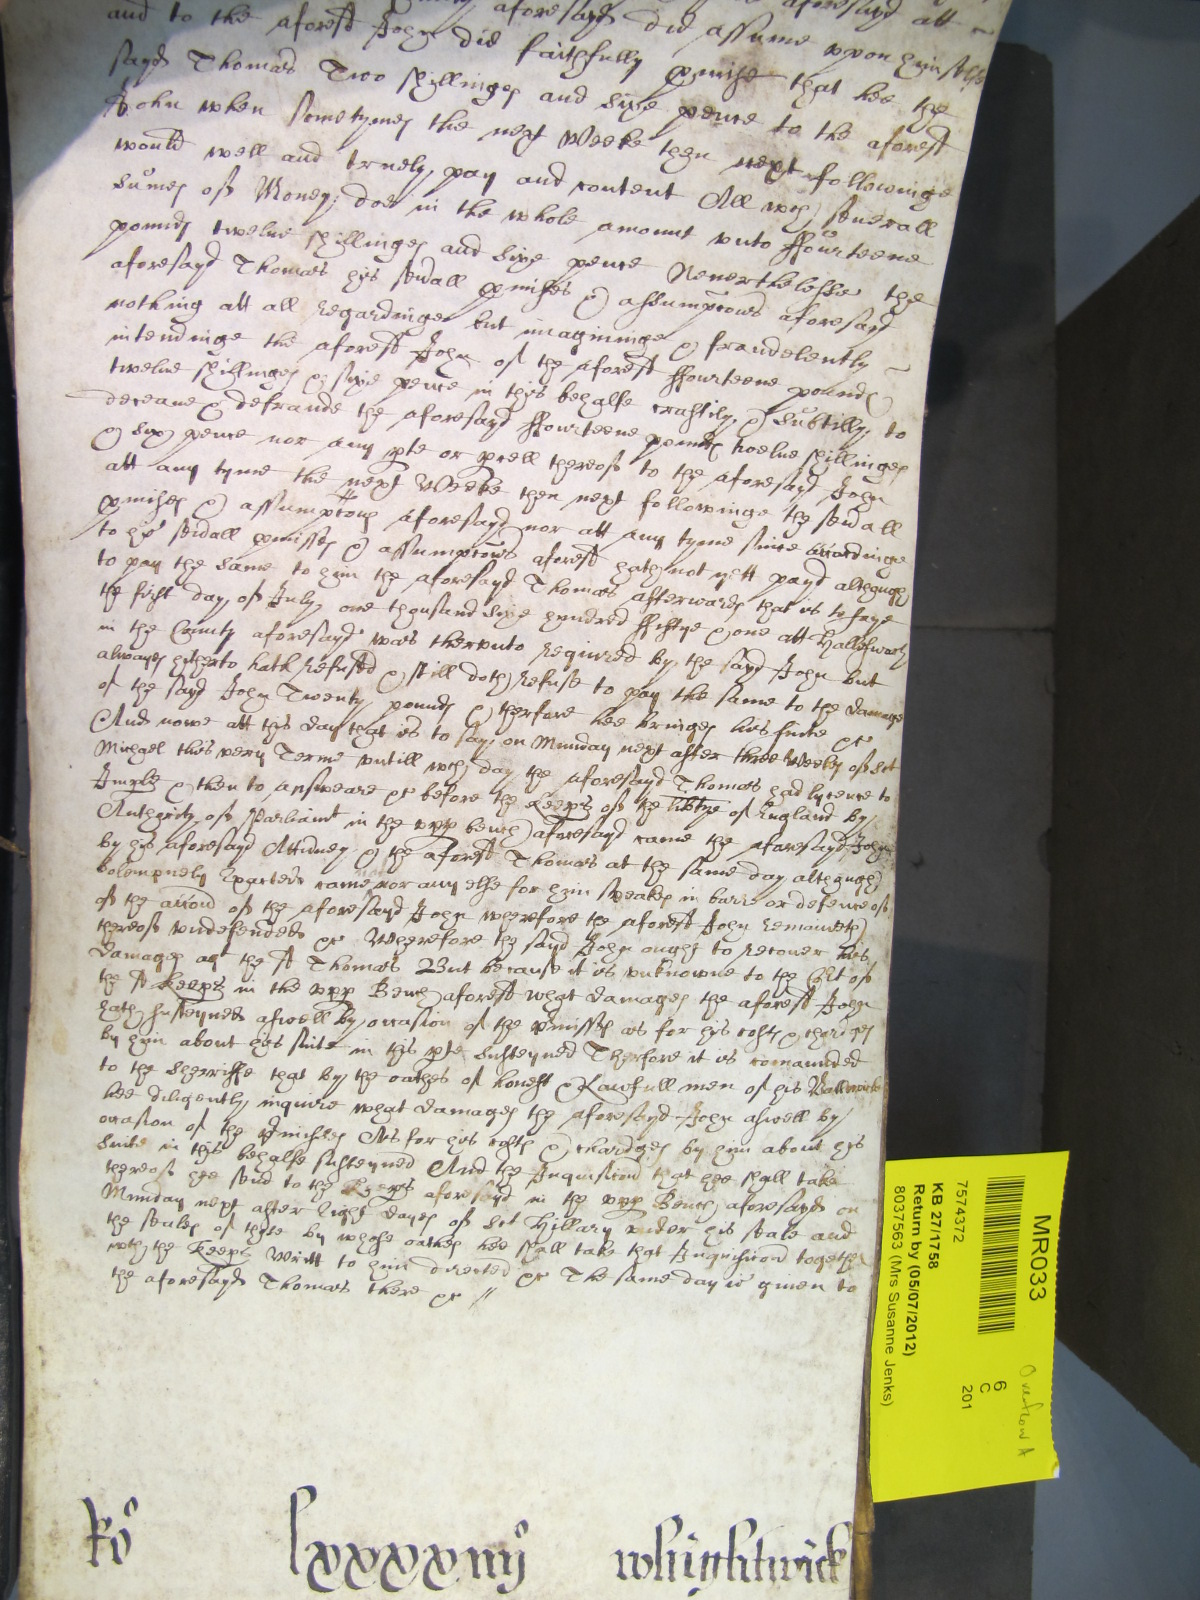 aforesayd did assume vpon himselfe
and to the aforesd John did faithfully pmise that hee the
sayd Thomas Two shillinges and sixe pence to the aforesd
John when sometymes the next Weeke then next followinge
would well and truely pay and content All wch seuerall
sumes of Money does in the whole amount vnto ffourteene
pounds twelue shillinges and sixe pence Neuerthelesse the
aforesayd Thomas his seuall pmises & assumptions aforesayd
nothing att all regardinge but imagininge & fraudelently
intendinge the aforesd John of the aforesd ffourteene pounds
twelue shillinges & sixe pence in this behalfe craftily & subtilly to
deceaue & defraude the aforesayd ffourteene pounds twelue shillinges
& six pence nor any pte or pcell thereof to the aforesayd John
att any tyme the next Weeke then next followinge the seuall
pmises & assumptions aforesayd nor att any tyme since accordinge
to his seuall pmisses & assumptions aforesd hath not yett payd although
to pay the same to him the aforesayd Thomas afterwards that is to saye
the first day of July one thousand sixe hundred ffiftye & one att Hallesworth
in the County aforesayd was therevnto required by the sayd John but
alwayes hitherto hath refused & still doth refuse to pay the same to the damage
of the sayd John Twenty pounds & therfore hee bringes his suite &c
And nowe att this day that is to say on Munday next after three Weekes of Sct
Michael this very Terme vntill wch day the aforesayd Thomas had lycence to
Imple & then to answeare &c before the Keeps of the libtye of England by
Authority of Parliamt in the vpp bench aforesayd came the aforesayd John
by his aforesayd Atturney & the aforesd Thomas at the same day although
Solempnely exacted came nor any else for him speakes in barre or defence of
of the accon of the aforesayd John wherefore the aforesd John remaineth
thereof vndefended &c Wherefore the sayd John ought to recouer his
Damages agt the sd Thomas But because it is vnknowne to the Crt of
the sd Keeps in the vpp Bench aforesd what damages the aforesd John
hath susteyned aswell by occasion of the pmisses as for his costs & charges
by him about his suite in this pte susteyned Therfore it is comaunded
to the Sherriffe that by the oathes of honest & Lawfull men of his Balliwicke
hee diligently inquire what damages the aforesayd John aswell by
occasion of the Pmisses As for his costs & chardges by him about his
suite in this behalfe susteyned And the Inquisicion that hee shall take
thereof hee send to the Keeps aforesayd in the vpp Bench aforesayd on
Munday next after Eight dayes of Sct Hillary vnder his seale and
the seales of those by whose oathes hee shall take that Inquisicion together
wth the Keeps Writt to him directed &c The same day is giuen to
the aforesayd Thomas there &c //
Ro lxxxxiiij Whightwick
MR033
7574372
6
C
201
KB 27/1758
Return by (05/07/2012)
8037563 (Mrs Susanne Jenks)